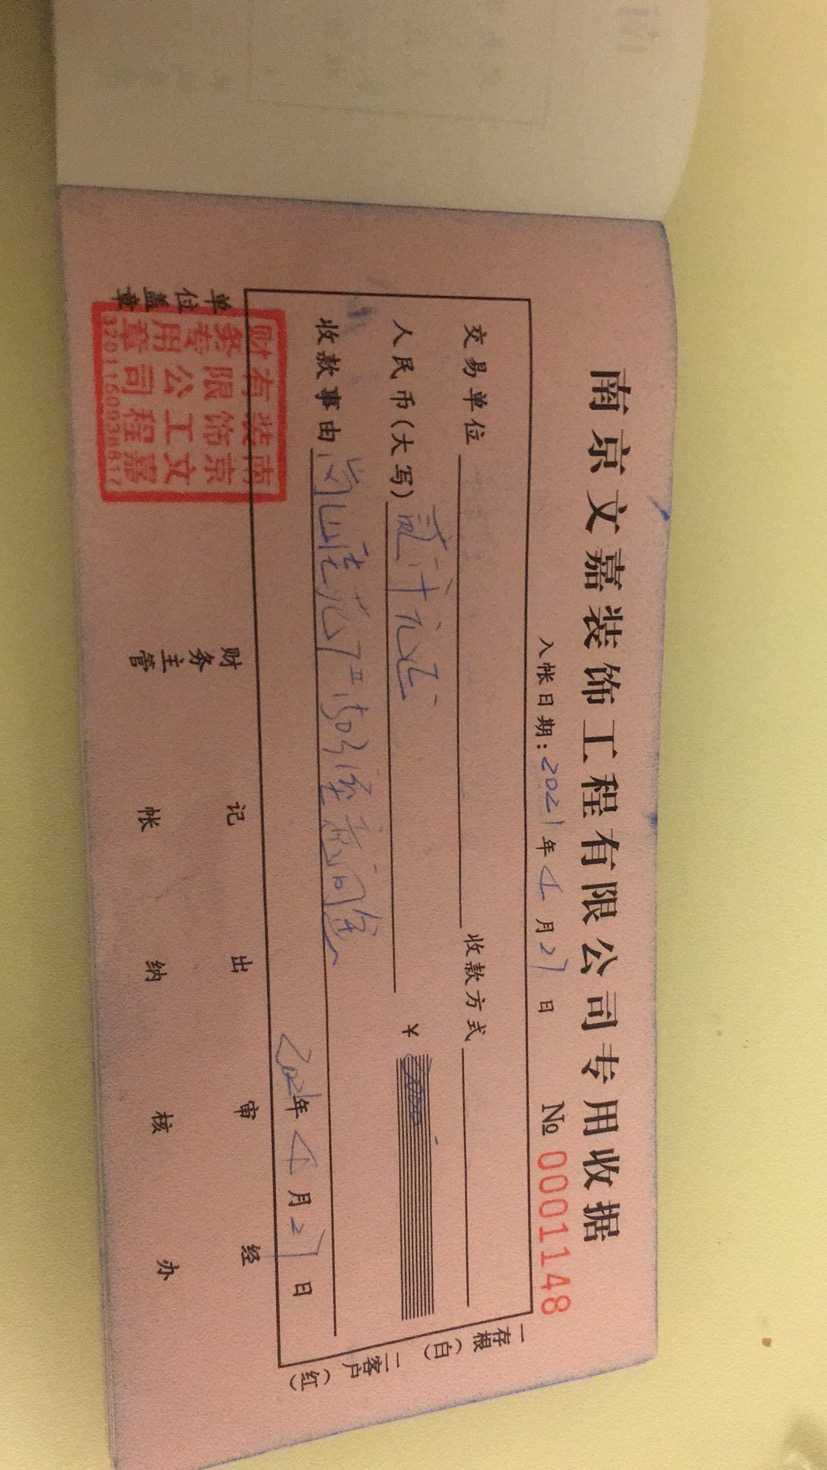 南京文嘉装饰工程有限公司专用收据
入帐日期:2021年4月27日 № 0001148
交易单位 收款方式
人民币(大写) 贰仟元正 ¥
收款事由
2021年4月27日
一存根(白) 二客户(红)
单位盖章 财务主管 记帐 出纳 审核 经办
南京文嘉
装饰工程
有限公司
财务专用章